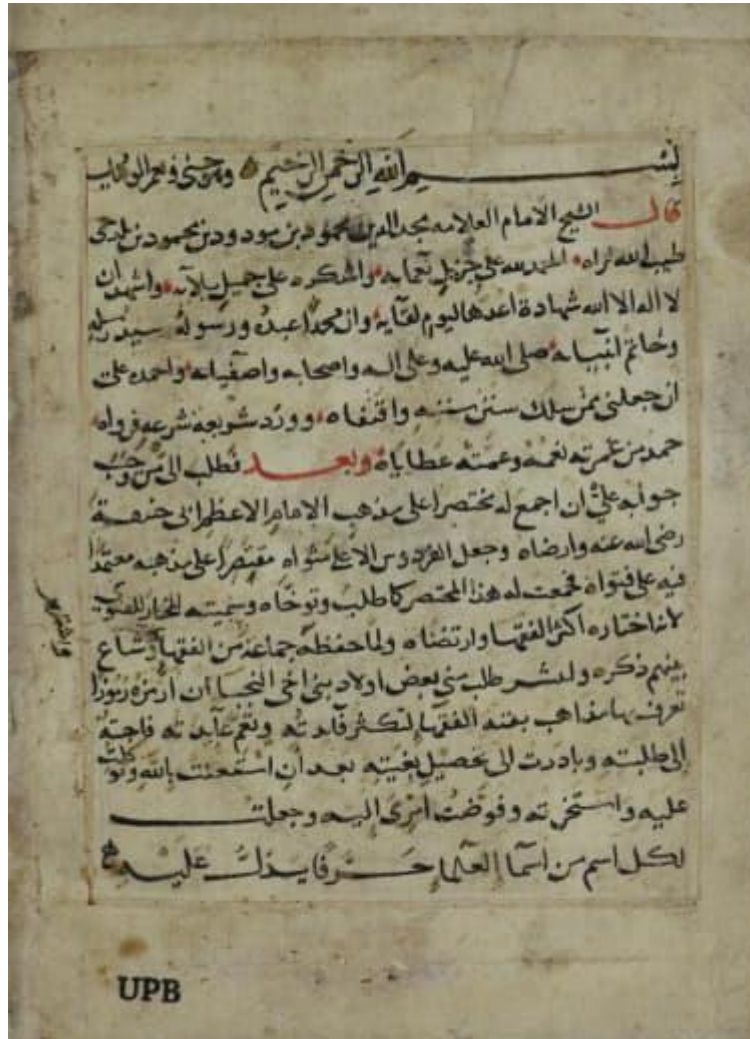 بسم الله الرحمن الرحيم وهو حسبي ونعم الوكيل
قال الشيخ الامام العلامه مجد الدين محمود بن مودود بن محمود بن بلدجى
طيب الله ثراه الحمد لله على جزيل نعمايه واشكره على جميل بلآيه واشهد ان
لا اله الا الله شهادة اعدها ليوم لقآيه وان محمدا عبده ورسوله سيد رسله
وخاتم انبيايه صلى الله عليه وعلى اله واصحابه واصفيايه واحمده على
ان جعلنى ممن سلك سنن سننه واقتفاه وورد شريعة شرعه فرواه
حمد من غمرته نعمه وعمته عطاياه وبعد فطلب الى من وجب
جوابه على ان اجمع له مختصرا على مذهب الامام الاعظم ابى حنيفة
رضى الله عنه وارضاه وجعل الفردوس الاعلى مثواه مقتصرا على مذهبه معتمدا
فيه على فتواه فجمعت له هذا المختصر كما طلب وتوخاه وسميته المختار للفتوى
لانه اختاره اكثر الفقها وارتضاه ولما حفظه جماعة من الفقها وشاع
بينهم ذكره وانتشر طلب منى بعض اولاد بنى اخى النجبا ان ارمزه رموزا
تعرف بها مذاهب بقية الفقها لتكثر فآيدته وتعم عآيدته فاجبته
الى طلبته وبادرت الى تحصيل بغيته بعد ان استعنت بالله وتوكلت
عليه واستخرته وفوضت امرى اليه وجعلت
لكل اسم من اسما العلما حرفا يدل عليه
UPB